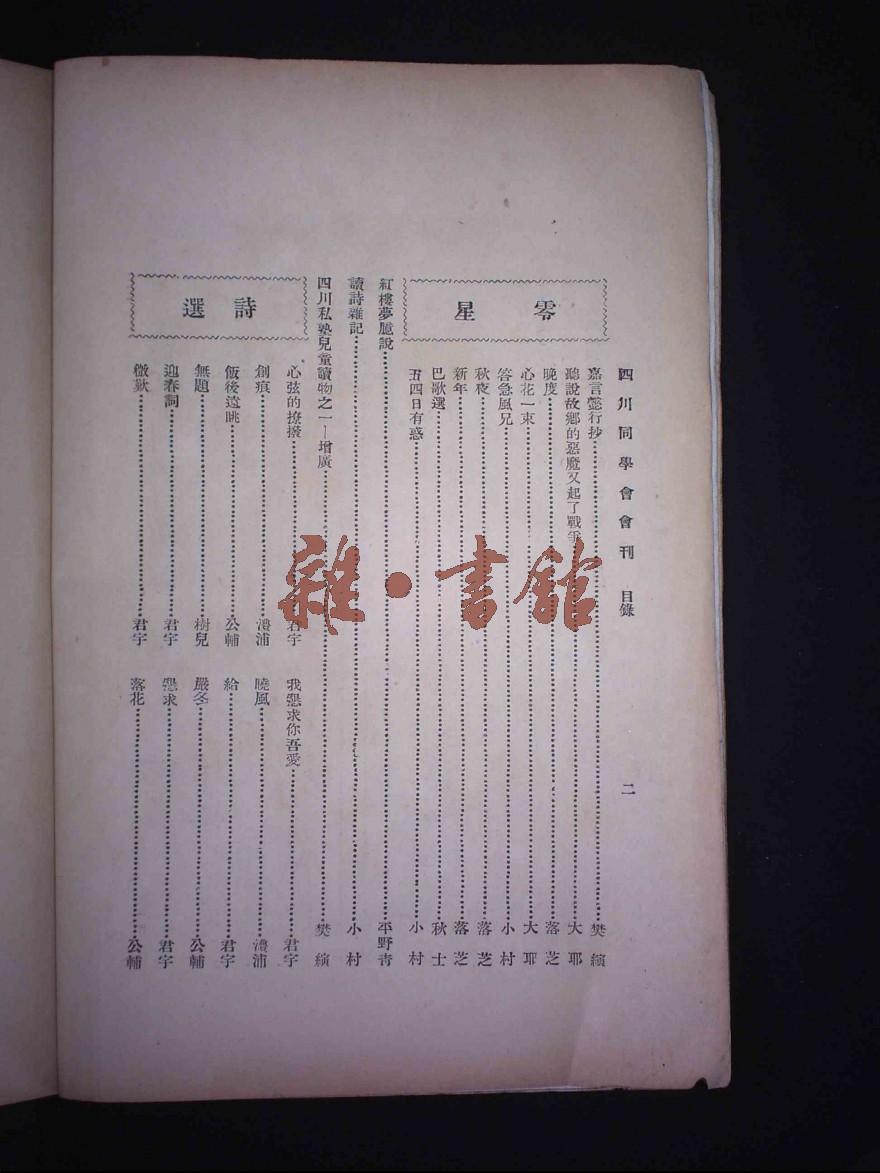 四川同學會會刊 目錄 二
零星
嘉言懿行抄 樊縯
聽說故鄉的惡魔又起了戰爭 大耶
晚度 落芝
心花一束 大耶
答急風兄 小村
秋夜 落芝
新年 落芝
巴歌選 秋士
五四日有惑 小村
紅樓夢臆說 平野青
讀詩雜記 小村
四川私塾兒童讀物之一—增廣 樊縯
詩選
心弦的撩撥 君宇 我懇求你吾愛 君宇
創痕 澧浦 曉風 澧浦
飯後遠眺 公輔 給 君宇
無題 樹兒 嚴冬 公輔
迎春詞 君宇 懇求 君宇
微歎 君宇 落花 公輔
雜·書館